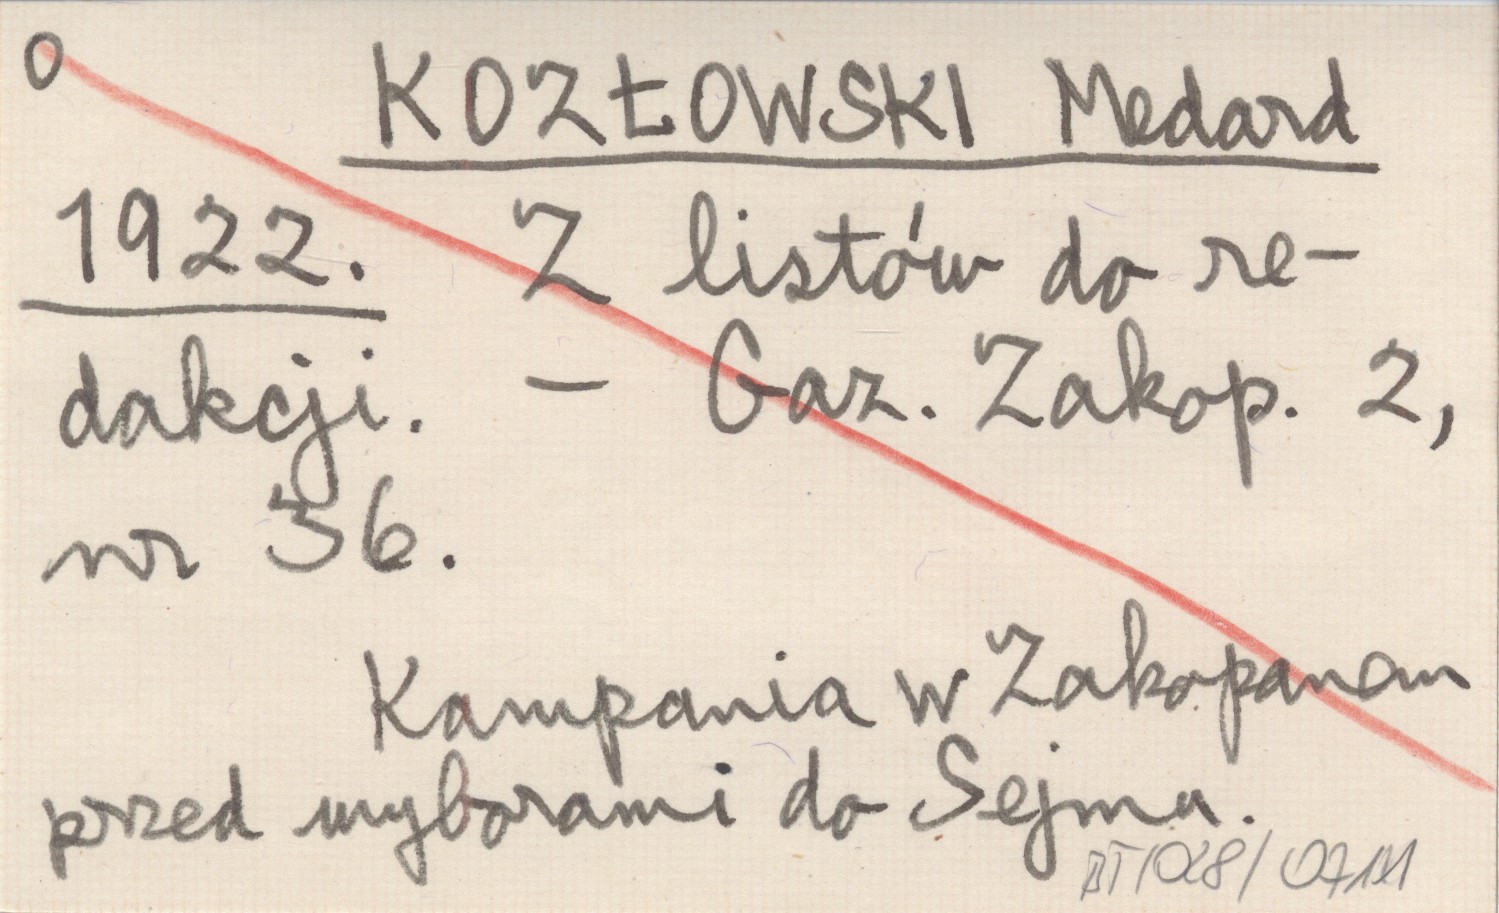 O KOZŁOWSKI Medard
1922. Z listów do re-
dakcji. – Gaz. Zakop. 2,
nr 36.
Kampania w Zakopanem
przed wyborami do Sejmu.